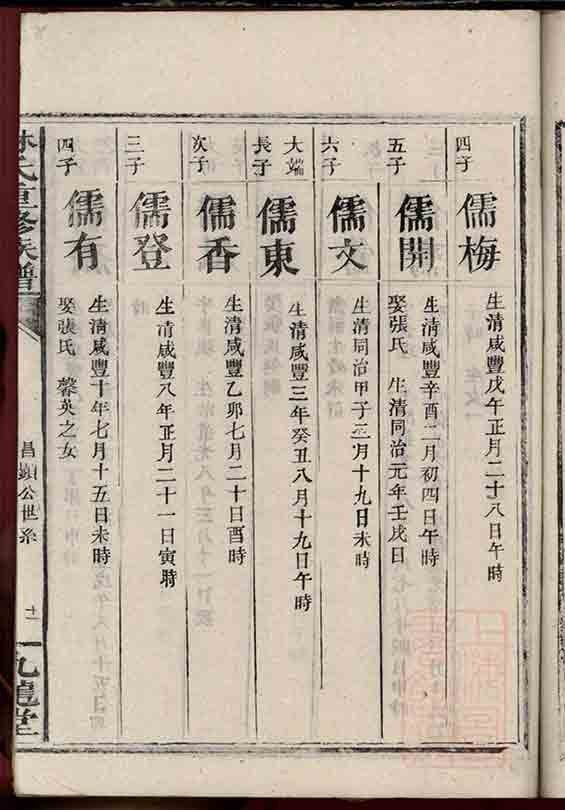 四子
儒梅
生清咸豐戊午正月二十八日午時
五子
儒開
生清咸豐辛酉二月初四日午時
娶張氏 生清同治元年壬戌日
六子
儒文
生清同治甲子三月十九日未時
大端
長子
儒東
生清咸豐三年癸丑八月十九日午時
次子
儒香
生清咸豐乙卯七月二十日酉時
三子
儒登
生清咸豐八年正月二十一日寅時
四子
儒有
生清咸豐十年七月十五日未時
娶張氏 馨英之女
林氏重修族譜
昌顯公世系
十一
九龍堂